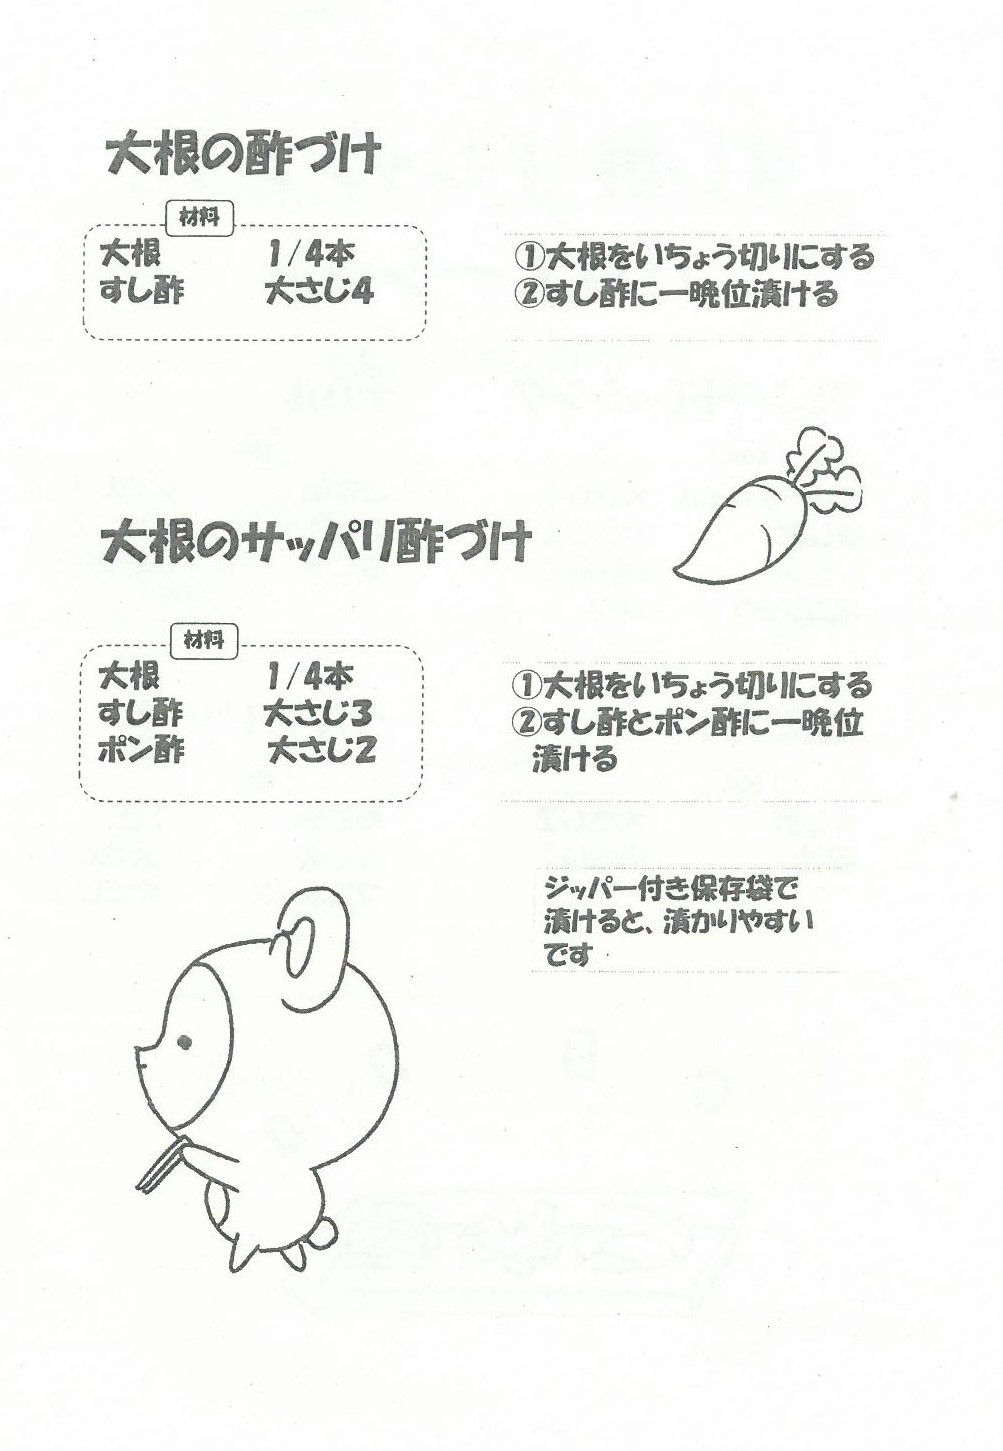 大根の酢づけ
材料
大根 1/4本
すし酢 大さじ4
①大根をいちょう切りにする
②すし酢に一晩位漬ける
大根のサッパリ酢づけ
材料
大根 1/4本
すし酢 大さじ3
ポン酢 大さじ2
①大根をいちょう切りにする
②すし酢とポン酢に一晩位
漬ける
ジッパー付き保存袋で
漬けると、漬かりやすい
です